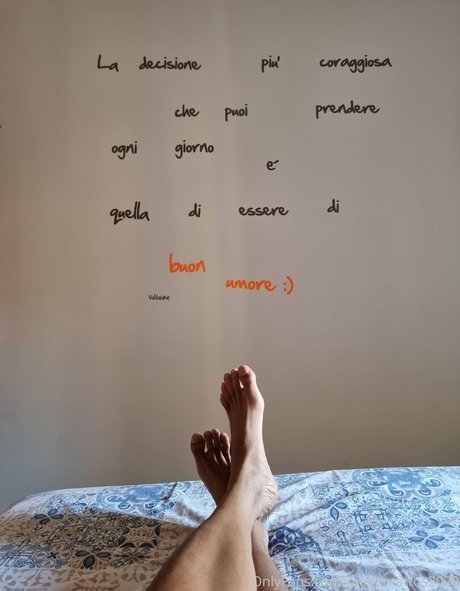 La decisione piu' coraggiosa
che puoi prendere
ogni giorno
e´
quella di essere di
buon
umore :)
Voltaire